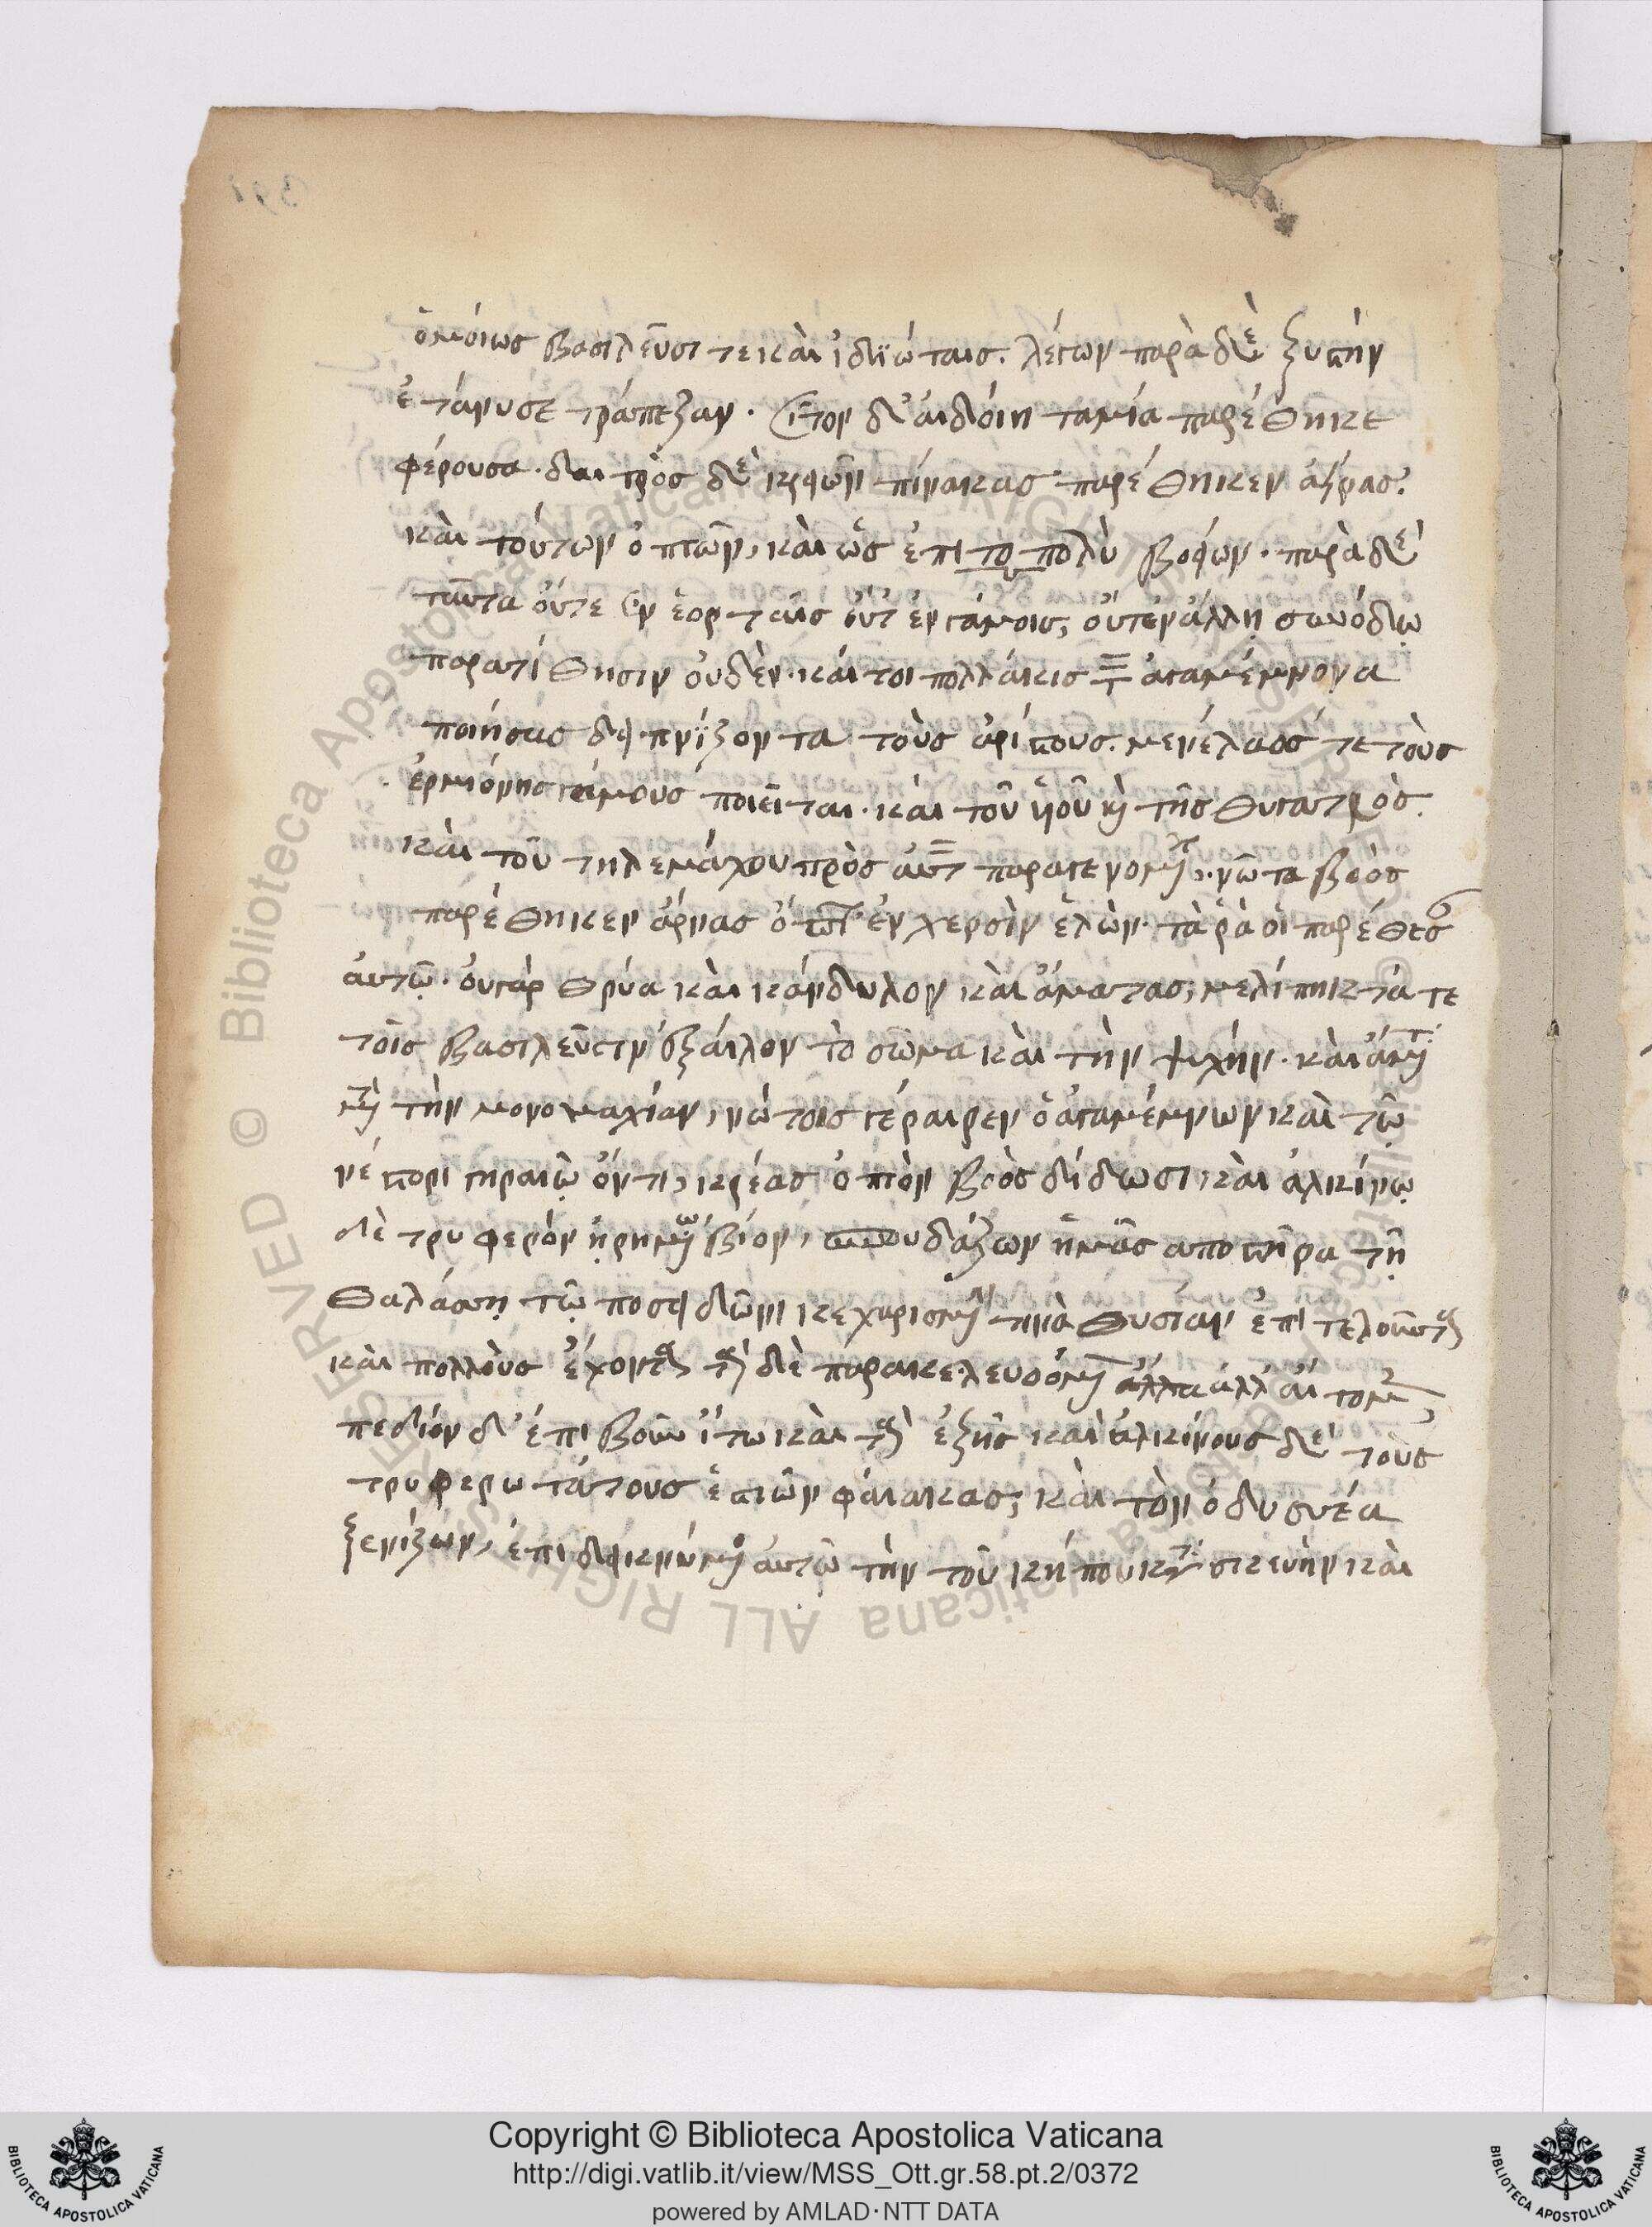 ὁμοίως βασιλεῦσί τε καὶ ἰδιώταις. λέγων παρὰ δὲ ξυστὴν
ἐτάνυσε τράπεζαν. σῖτον δ' αἰδοίη ταμία παρέθηκε
φέρουσα. δαιτρὸς δὲ κρειῶν πίνακας παρέθηκεν ἀείρας.
καὶ τούτων ὀπτῶν, καὶ ὡς ἐπὶ το πολὺ βοείων. παρὰ δὲ
ταῦτα οὔτε ἐν ἑορταῖς οὔτ' ἐν γάμοις, οὔτ' ἐν ἄλλῃ συνόδῳ
παρατίθησιν οὐδέν. καί τοι πολλάκις τὸν ἀγαμέμνονα
ποιήσας δειπνίζοντα τοὺς ἀρίστους. μενέλαός τε τοὺς
ἑρμιόνης γάμους ποιεῖται. καὶ τοῦ υἱοῦ κὴ τῆς θυγατρὸς.
καὶ τοῦ τηλεμάχου πρὸς αὐτὸν παραγενομένου. νῶτα βοὸς
παρέθηκεν ἀείρας ὄπτ' ἐν χερσὶν ἑλών. τὰ ῥά οἱ παρέθεσαν
αὐτῷ. οὐ γὰρ θρύα καὶ κάνδυλον καὶ ἄμητας, μελίπηκτά τε
τοῖς βασιλεῦσιν ἐξαίλον τὸ σῶμα καὶ τὴν ψυχήν. καὶ αἴαντα
μετὰ τὴν μονομαχίαν, νώτοις γέραιρεν ὁ ἀγαμέμνων καὶ τῷ
νέστορι γηραιῷ ὄντι, κρέας ὀπτὸν βοὸς δίδωσι, καὶ ἀλκίνῳ
δὲ τρυφερὸν ᾑρημένῳ βίον, σπουδάζων ἡμᾶς αποστῆραι τῇ
θαλάσσῃ τῷ ποσειδῶνι κεχαρισμένην τινὰ θυσίαν ἐπιτελοῦντας
καὶ πολλοὺς ἔχοντας ταῦτα δὲ παρακελευσόμενος ἄλλα ἀλλ' ἄγε τοι μὲν
πεδίον δ' ἐπὶ βοῦν ἴτω καὶ τὰ ἐξῆς καὶ ἀλκίνους δὲ τοὺς
τρυφερωτάτους ἑστιῶν φαίακας, καὶ τὸν ὀδυσσέα
ξενίζων, ἐπιδεικνύμενος αὐτῷ τὴν τοῦ κήπου κατασκευὴν καὶ
Copyright © Biblioteca Apostolica Vaticana
http://digi.vatlib.it/view/MSS_Ott.gr.58.pt.2/0372
powered by AMLAD·NTT DATA